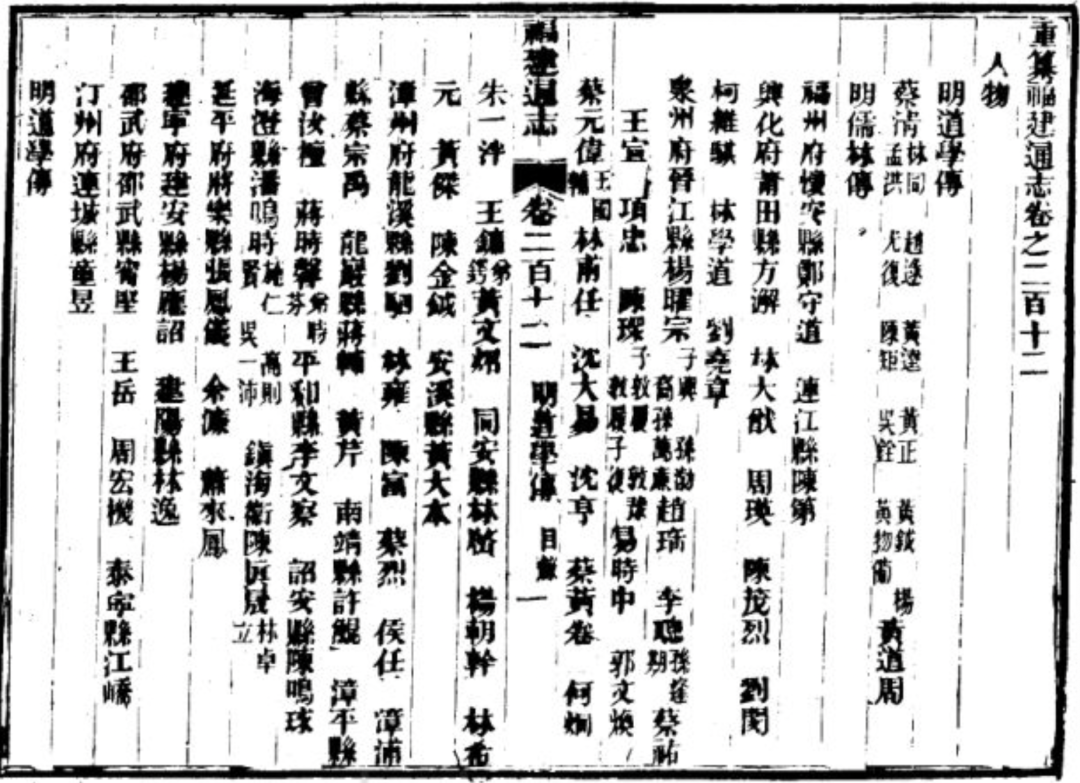 重纂福建通志卷之二百十二
人物
明道學傳
蔡清 林同 孟洪 趙逯 尤復 黃逵 陳矩 黃正 吳銓 黃鉞 黃物 楊 黃道周
明儒林傳
福州府懷安縣鄭守道 連江縣陳第
興化府莆田縣方澥 林大猷 周瑛 陳茂烈 劉閔
柯維騏 林學道 劉堯章
泉州府晉江縣楊曜宗 子興 裔孫萬 孫渤 趙瑞 李聰 孫逢期 蔡祐
王宣 項忠 陳琛 子敦履 敦豫 敦履子復 易時中 郭文煥
蔡元偉 王國輔 林甫任 沈大易 沈亨 蔡黃卷 何炯
福建通志 卷二百十二 明道學傳 目錄 一
朱一泮 王鏞 弟鍔 黃文炤 同安縣林啓 楊朝幹 林希
元 黃傑 陳金鉞 安溪縣黃大本
漳州府龍溪縣劉駟 林雍 陳富 蔡烈 侯任 漳浦
縣蔡宗禹 龍巖縣蔣輔 黃芹 南靖縣許鯤 漳平縣
曾汝檀 蔣時馨 弟時芬 平和縣李文察 詔安縣陳鳴球
海澄縣潘鳴時 仁賢 高則 吳一沛 鎮海衛陳眞晟 林卓立
延平府將樂縣張鳳儀 余濂 蕭來鳳
建寧府建安縣楊應詔 建陽縣林逸
邵武府邵武縣甯堅 王岳 周宏機 泰寧縣江嶠
汀州府連城縣童昱
明道學傳